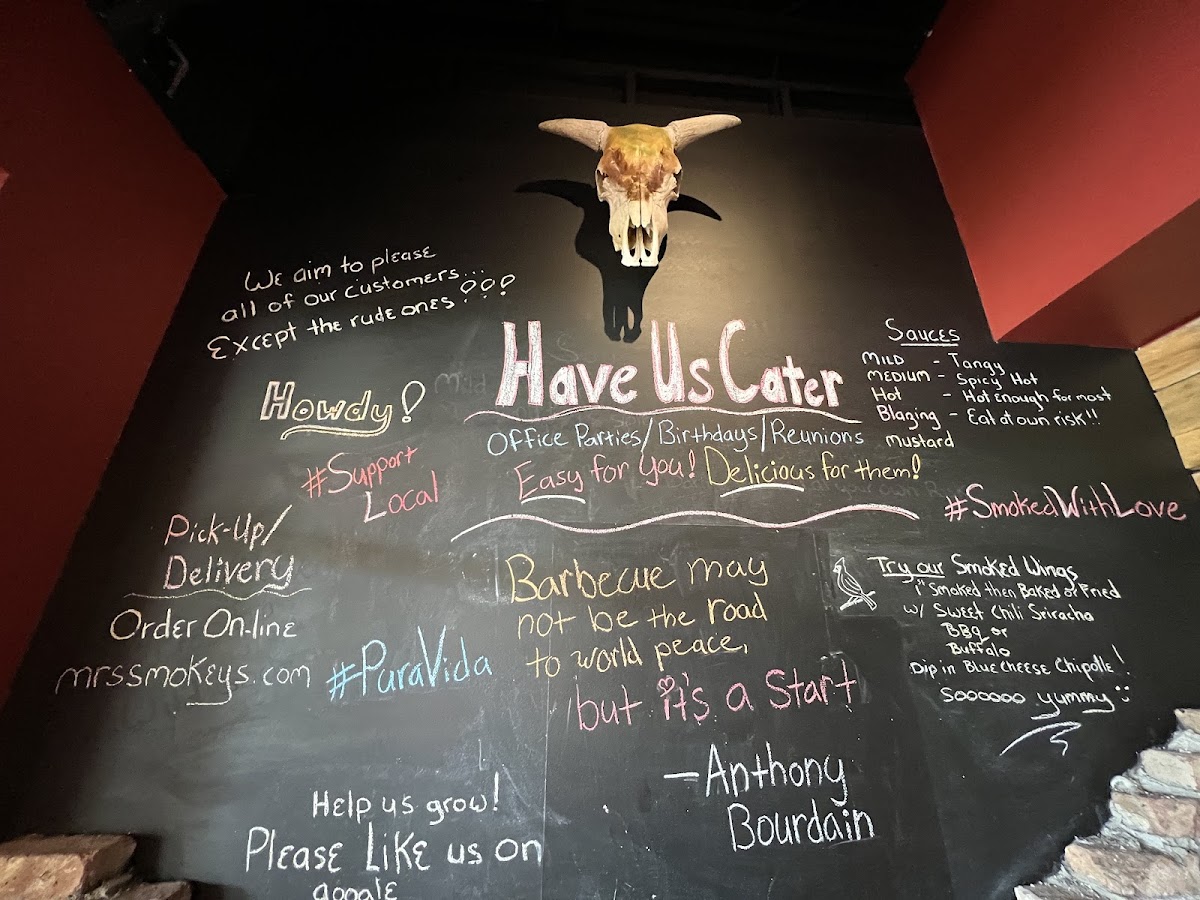 We aim to please
all of our customers...
Except the rude ones!!!
Howdy!
#Support
Local
Pick-Up/
Delivery
Order On-line
mrssmokeys.com
#PuraVida
Help us grow!
Please Like us on
google
Have Us Cater
Office Parties/Birthdays/Reunions
Easy for you! Delicious for them!
Barbecue may
not be the road
to world peace,
but it's a Start
—Anthony
Bourdain
Sauces
Mild - Tangy
Medium - Spicy Hot
Hot - Hot Enough for most
Blazing - Eat at own risk!!
mustard
#SmokedWithLove
Try our Smoked Wings
Smoked then Baked or Fried
w/ Sweet Chili Sriracha
BBq or
Buffalo
Dip in Bluecheese Chipotle!
Soooooo yummy